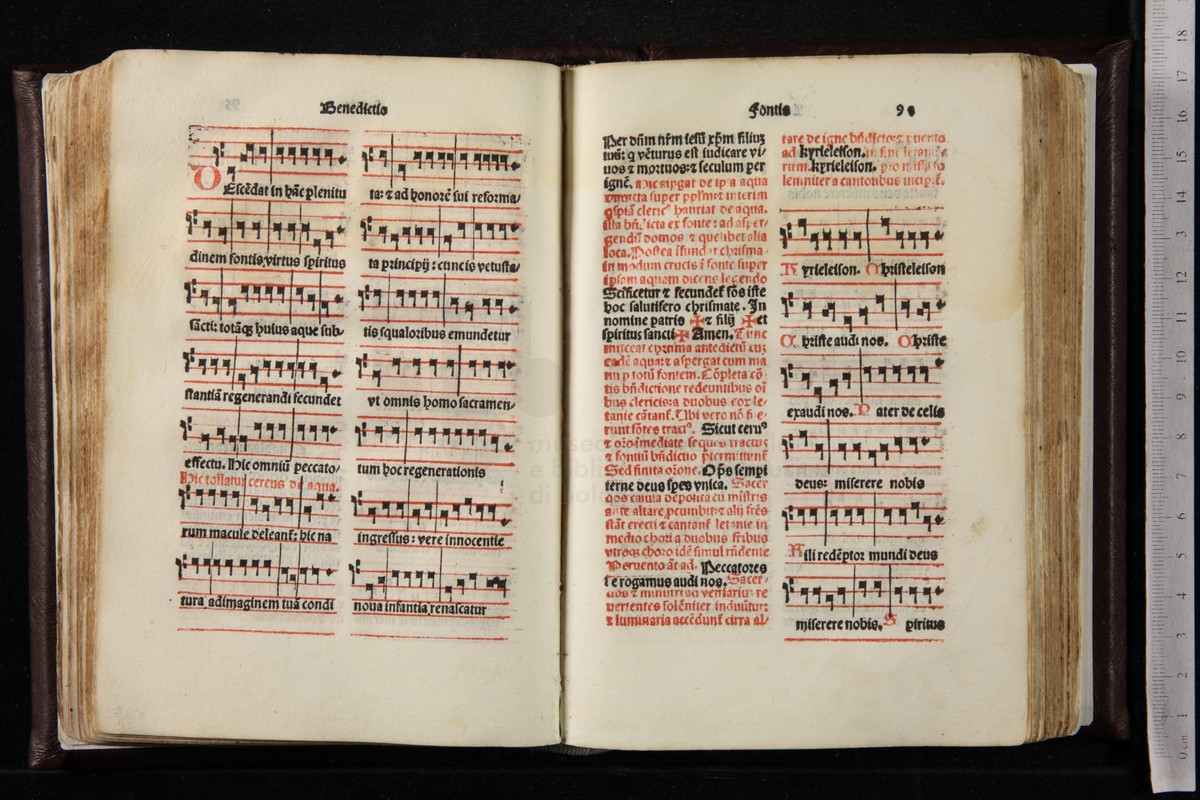 Benedictio
D
Escēdat in hāc plenitu
dinem fontis virtus spiritus
sācti: totāqꝫ huius aque sub-
stantiā regenerandi fecundet
effectu. Hic omniū peccato
Hic tollatur cereus de aqua.
rum macule deleant̄: hic na
tura adimaginem tuā condi
ta: ⁊ ad honorē sui reforma-
ta principij: cunctis vetusta-
tis squaloribus emundetur
vt omnis homo sacramen-
tum hoc regenerationis
ingressus: vere innocentie
noua infantia renascatur
Fontis 9
Per dn̄m nr̄m iesū xp̄m filiuꝫ
tuū: q vēturus est iudicare vi-
uos ⁊ mortuos: ⁊ seculum per
ignē. Hic aqua
super interim
hauriat de aqua.
ex fonte: ad asper-
gendū domos ⁊ quelibet alia
loca. Postea īfundat chrisma
in modum crucis ī fonte super
ipsam aquam dicens legendo
Scīficetur ⁊ fecundet fōs iste
hoc salutifero chrismate. In
nomine patris ✠ ⁊ filij ✠ et
spiritus sancti ✠ Amen. Tunc
misceat chrisma antedictū cuꝫ
eadē aqua: ⁊ aspergat cum ma
nu p totū fontem. Cōpleta cō
tis bn̄dictione redeuntibus oī
bus clericis: a duobus le-
tanie cātant̄. Ubi vero nō
runt fōtes Sicut ceruꝰ
tractus
⁊ fontiū bn̄dictio
Sed finita orōne. Op̄s sempi
terne deus spes vnica. Sacer
dos casula deposita cū mīstris
ante altare pcumbit: ⁊ alij frēs
stāt erecti ⁊ cantant̄ letanie in
medio chori a duobus fr̄ibus
vtroqꝫ choro idē simul rn̄dente
Peruento āt ad. Peccatores
te rogamus audi nos. Sacer-
dos ⁊ ministri ad vestiariū re
uertentes solēniter induūtur:
⁊ luminaria accēdunt̄ circa al-
tare de igne bn̄dicto: ⁊ uento
ad kyrieleison. in fine letania
rum. kyrieleison. pro missa so
lemniter a cantoribus incipit̄.
Kyrieleison. Christeleison
Christe audi nos. Christe
exaudi nos. Pater de celis
deus: miserere nobis
Fili redēptor mundi deus
miserere nobis. Spiritus
museo
e bibli
di bolo
18
17
16
15
14
13
12
11
10
9
8
7
6
5
4
3
2
1
0 cm